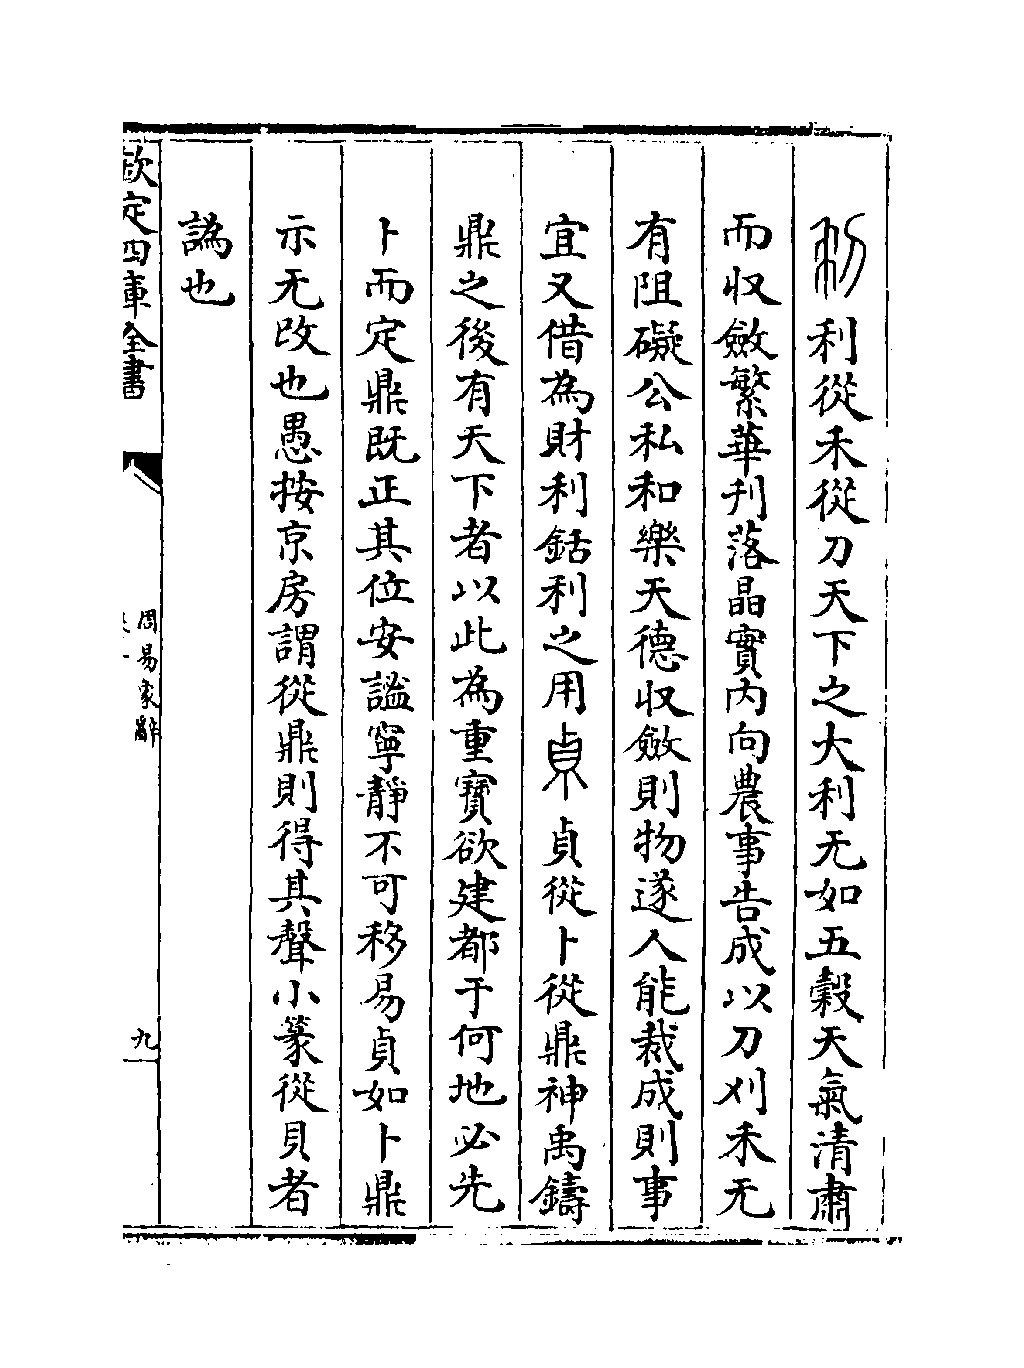 利利從禾從刀天下之大利无如五穀天氣清肅
而収斂繁華刋落晶實内向農事告成以刀刈禾无
有阻礙公私和樂天德収斂則物遂人能裁成則事
宜又借為財利銛利之用貞貞從卜從鼎神禹鑄
鼎之後有天下者以此為重寶欲建都于何地必先
卜而定鼎既正其位安謐寧靜不可移易貞如卜鼎
示无改也愚按京房謂從鼎則得其聲小篆從貝者
譌也
欽定四庫全書
周易象辭
九